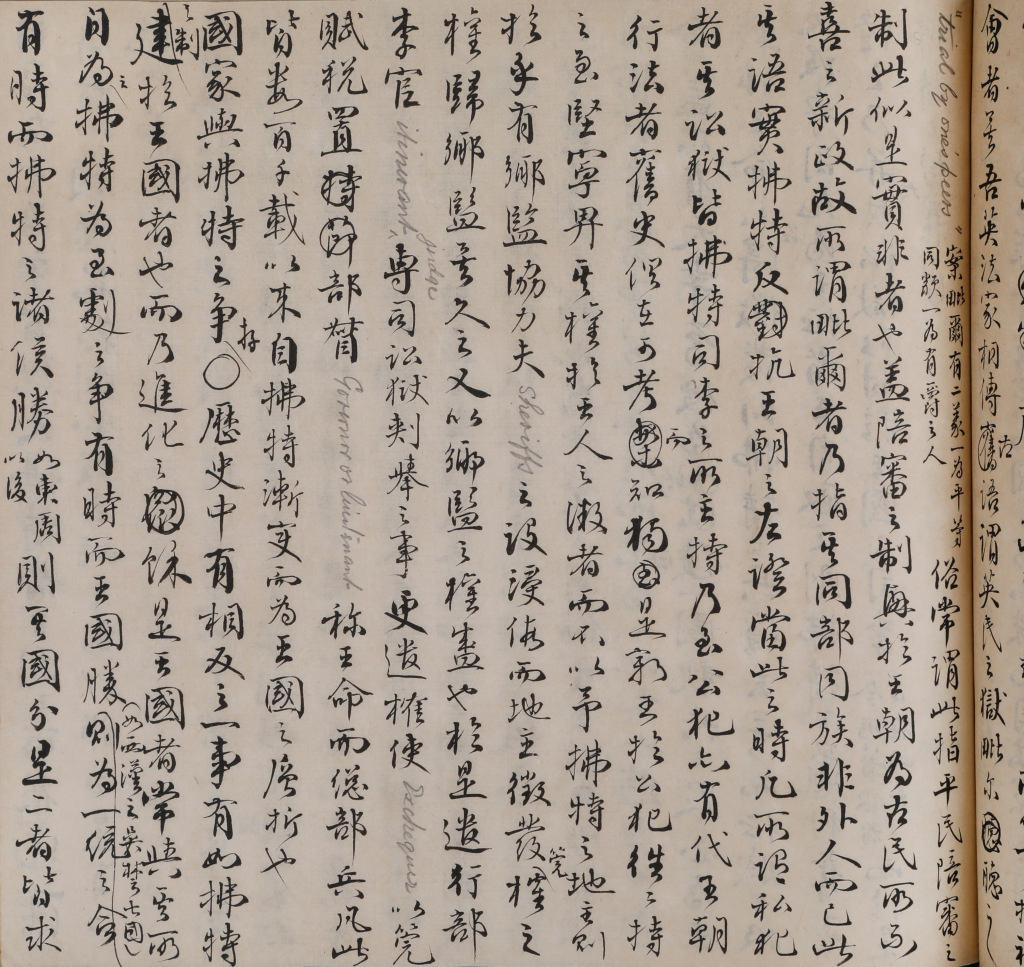 會者吾英法家相傳古語謂英民之獄毗尔
"trial by one's peers" 案毗爾有二義一為平等同類一為有爵之人 俗常謂此指平民陪審之
制此似是實非者也蓋陪審之制興於王朝為古民所不
喜之新政故所謂毗爾者乃指其同部同族非外人而已此
其語實拂特反抗王朝之左證當此之時凡所謂私犯
者其訟獄皆拂特司李之所主特乃至公犯亦有代王朝
行法者舊史俱在可考而知獨是新王於公犯往往特
之至堅寧畀其權於王人之淑者而不以予拂特之地主則
於是有鄉監協力夫 Sheriffs 之設浸假而地主徵發筦榷之
權歸鄉監矣久之又以鄉監之權盛也於是遣行部
李官 itinerant judge 專司訟獄刺舉之事更遣榷使 Exchequer 以筦
賦稅置部督 Governor or lieutenant 称王命而總部兵凡此
皆數百千載以來自拂特漸変而為王國之層折也
國家與拂特之爭存歷史中有相反之一事有如拂特
之制建於王國者也而乃進化之餘是王國者常與其所
自為拂特為至劇之爭有時而王國勝則為一統之合
有時而拂特之諸侯勝如東周以後則其國分是二者皆求